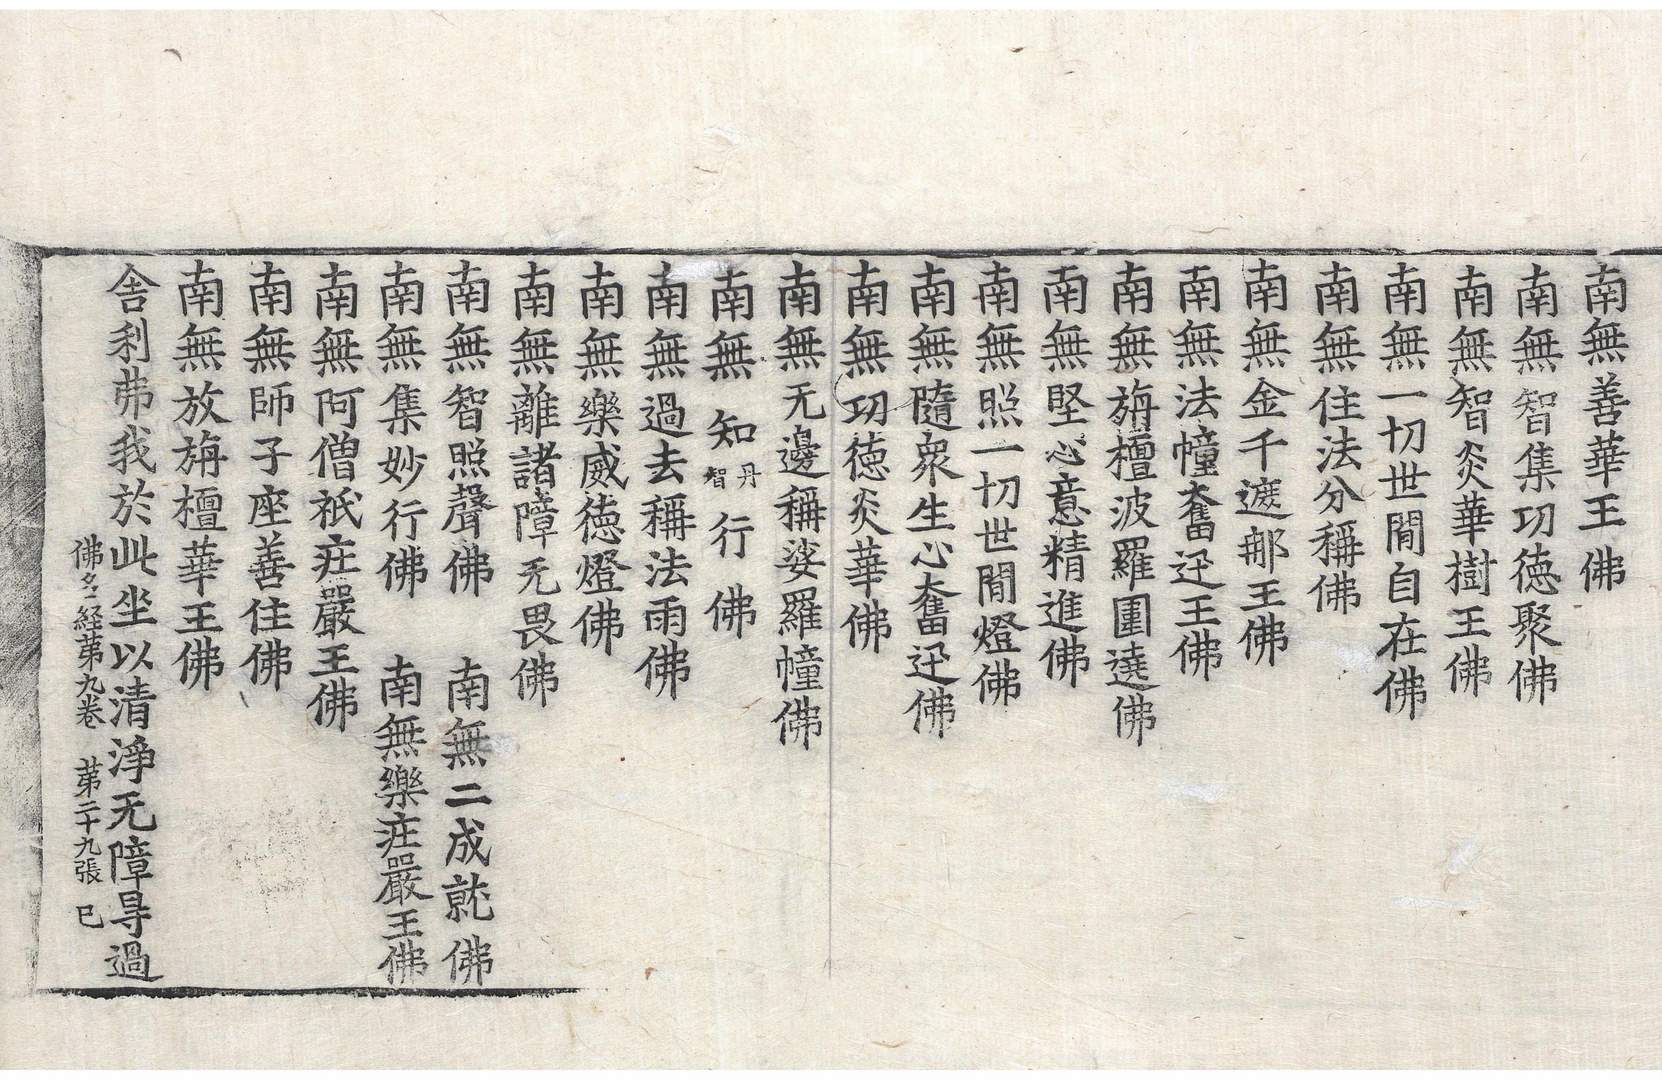 南無善華王佛
南無智集功徳聚佛
南無智炎華樹王佛
南無一切世間自在佛
南無住法分稱佛
南無金千遮那王佛
南無法幢奮迅王佛
南無旃檀波羅圍遶佛
南無堅心意精進佛
南無照一切世間燈佛
南無隨衆生心奮迅佛
南無功徳炎華佛
南無无邊稱娑羅幢佛
南無知丹智行佛
南無過去稱法雨佛
南無樂威徳燈佛
南無離諸障无畏佛
南無智照聲佛 南無二成就佛
南無集妙行佛 南無樂庄嚴王佛
南無阿僧祇庄嚴王佛
南無師子座善住佛
南無放旃檀華王佛
舎利弗我於此坐以清淨无障㝵過
佛名経苐九卷 苐二十九張 巳